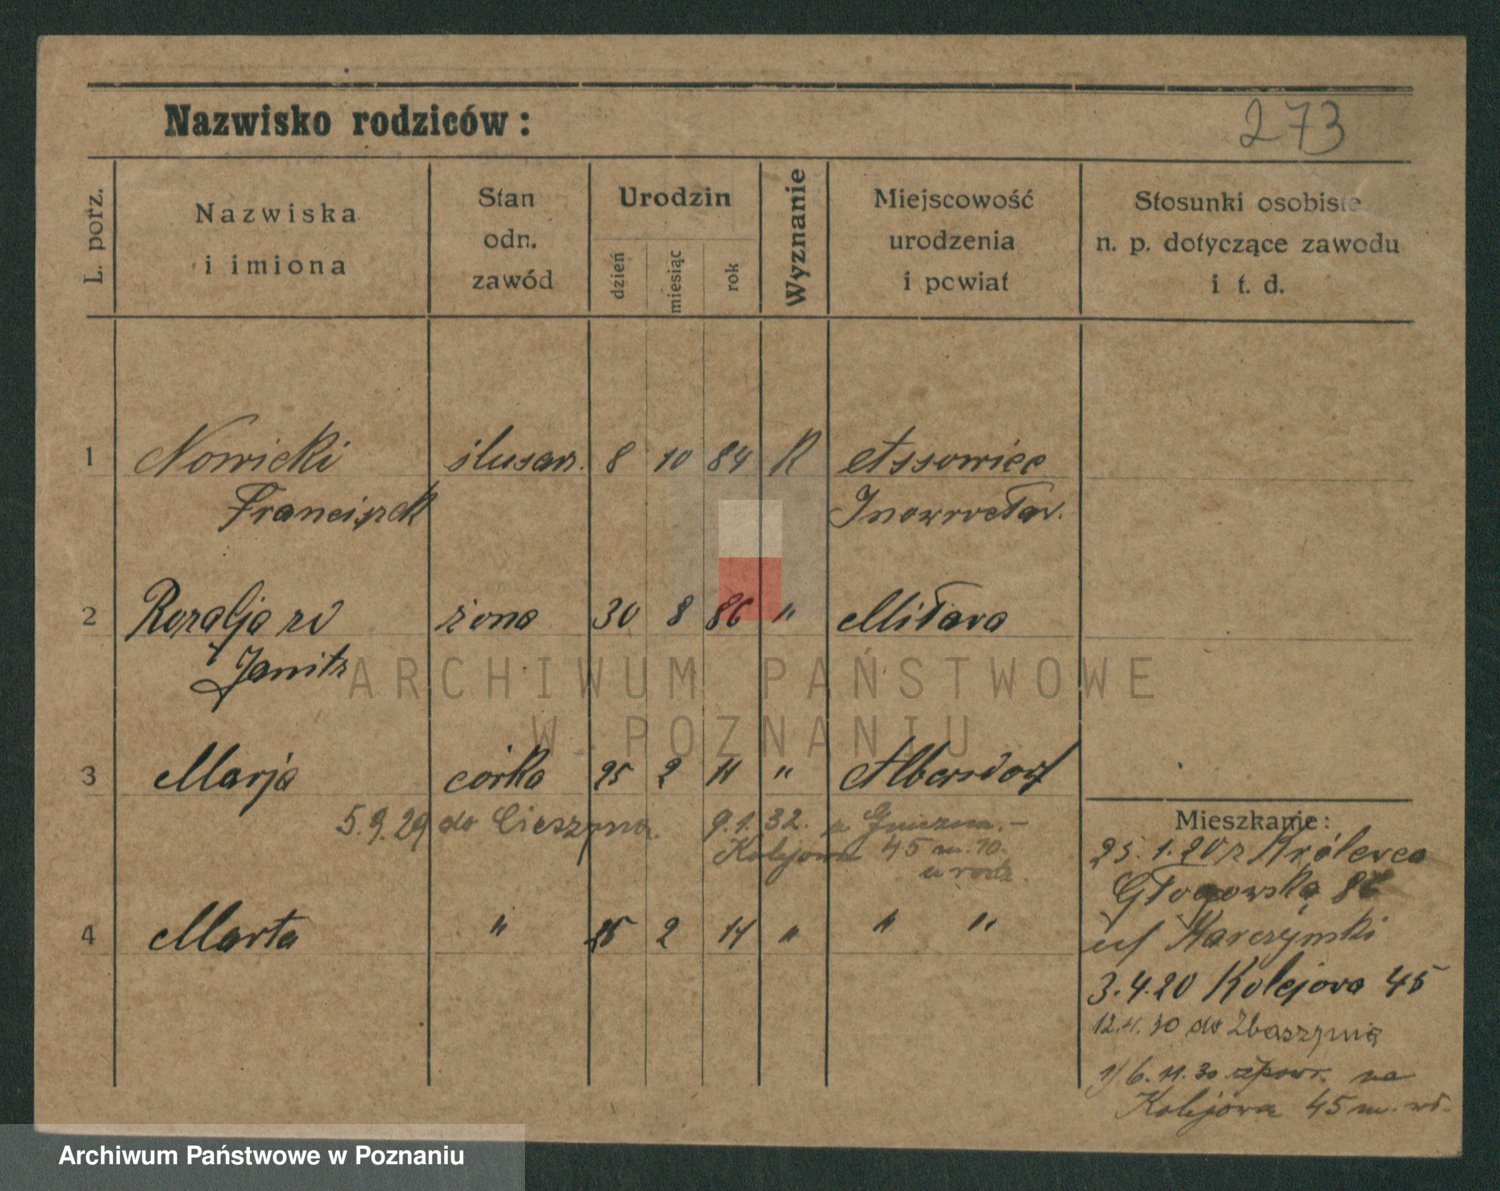 273
Nazwisko rodziców:
L. porz.
Nazwiska
i imiona
Stan
odn.
zawód
Urodzin
dzień
miesiąc
rok
Wyznanie
Miejscowość
urodzenia
i powiat
Stosunki osobiste
n. p. dotyczące zawodu
i t. d.
1 Nowicki ślusarz. 8 10 84 R
Franciszek Inowrocław.
2 Rozalja zd żona 30 8 86 "
Janitz
3 Marja córka 25 2 11 " Albersdorf
5.9.29 do Cieszyna. 9.1.32. z Gniezna.-
Kolejowa 45 m. 10.
u rodz.
4 Marta " 25 2 14 " " "
Mieszkanie:
25.1.20 z Królewca
Głogowska
Karczyński
3.4.20 Kolejowa 45
do Zbaszynia
1) 6.11.30 zpowr. na
Kolejowa 45 m.
ARCHIWUM PAŃSTWOWE
W POZNANIU
Archiwum Państwowe w Poznaniu